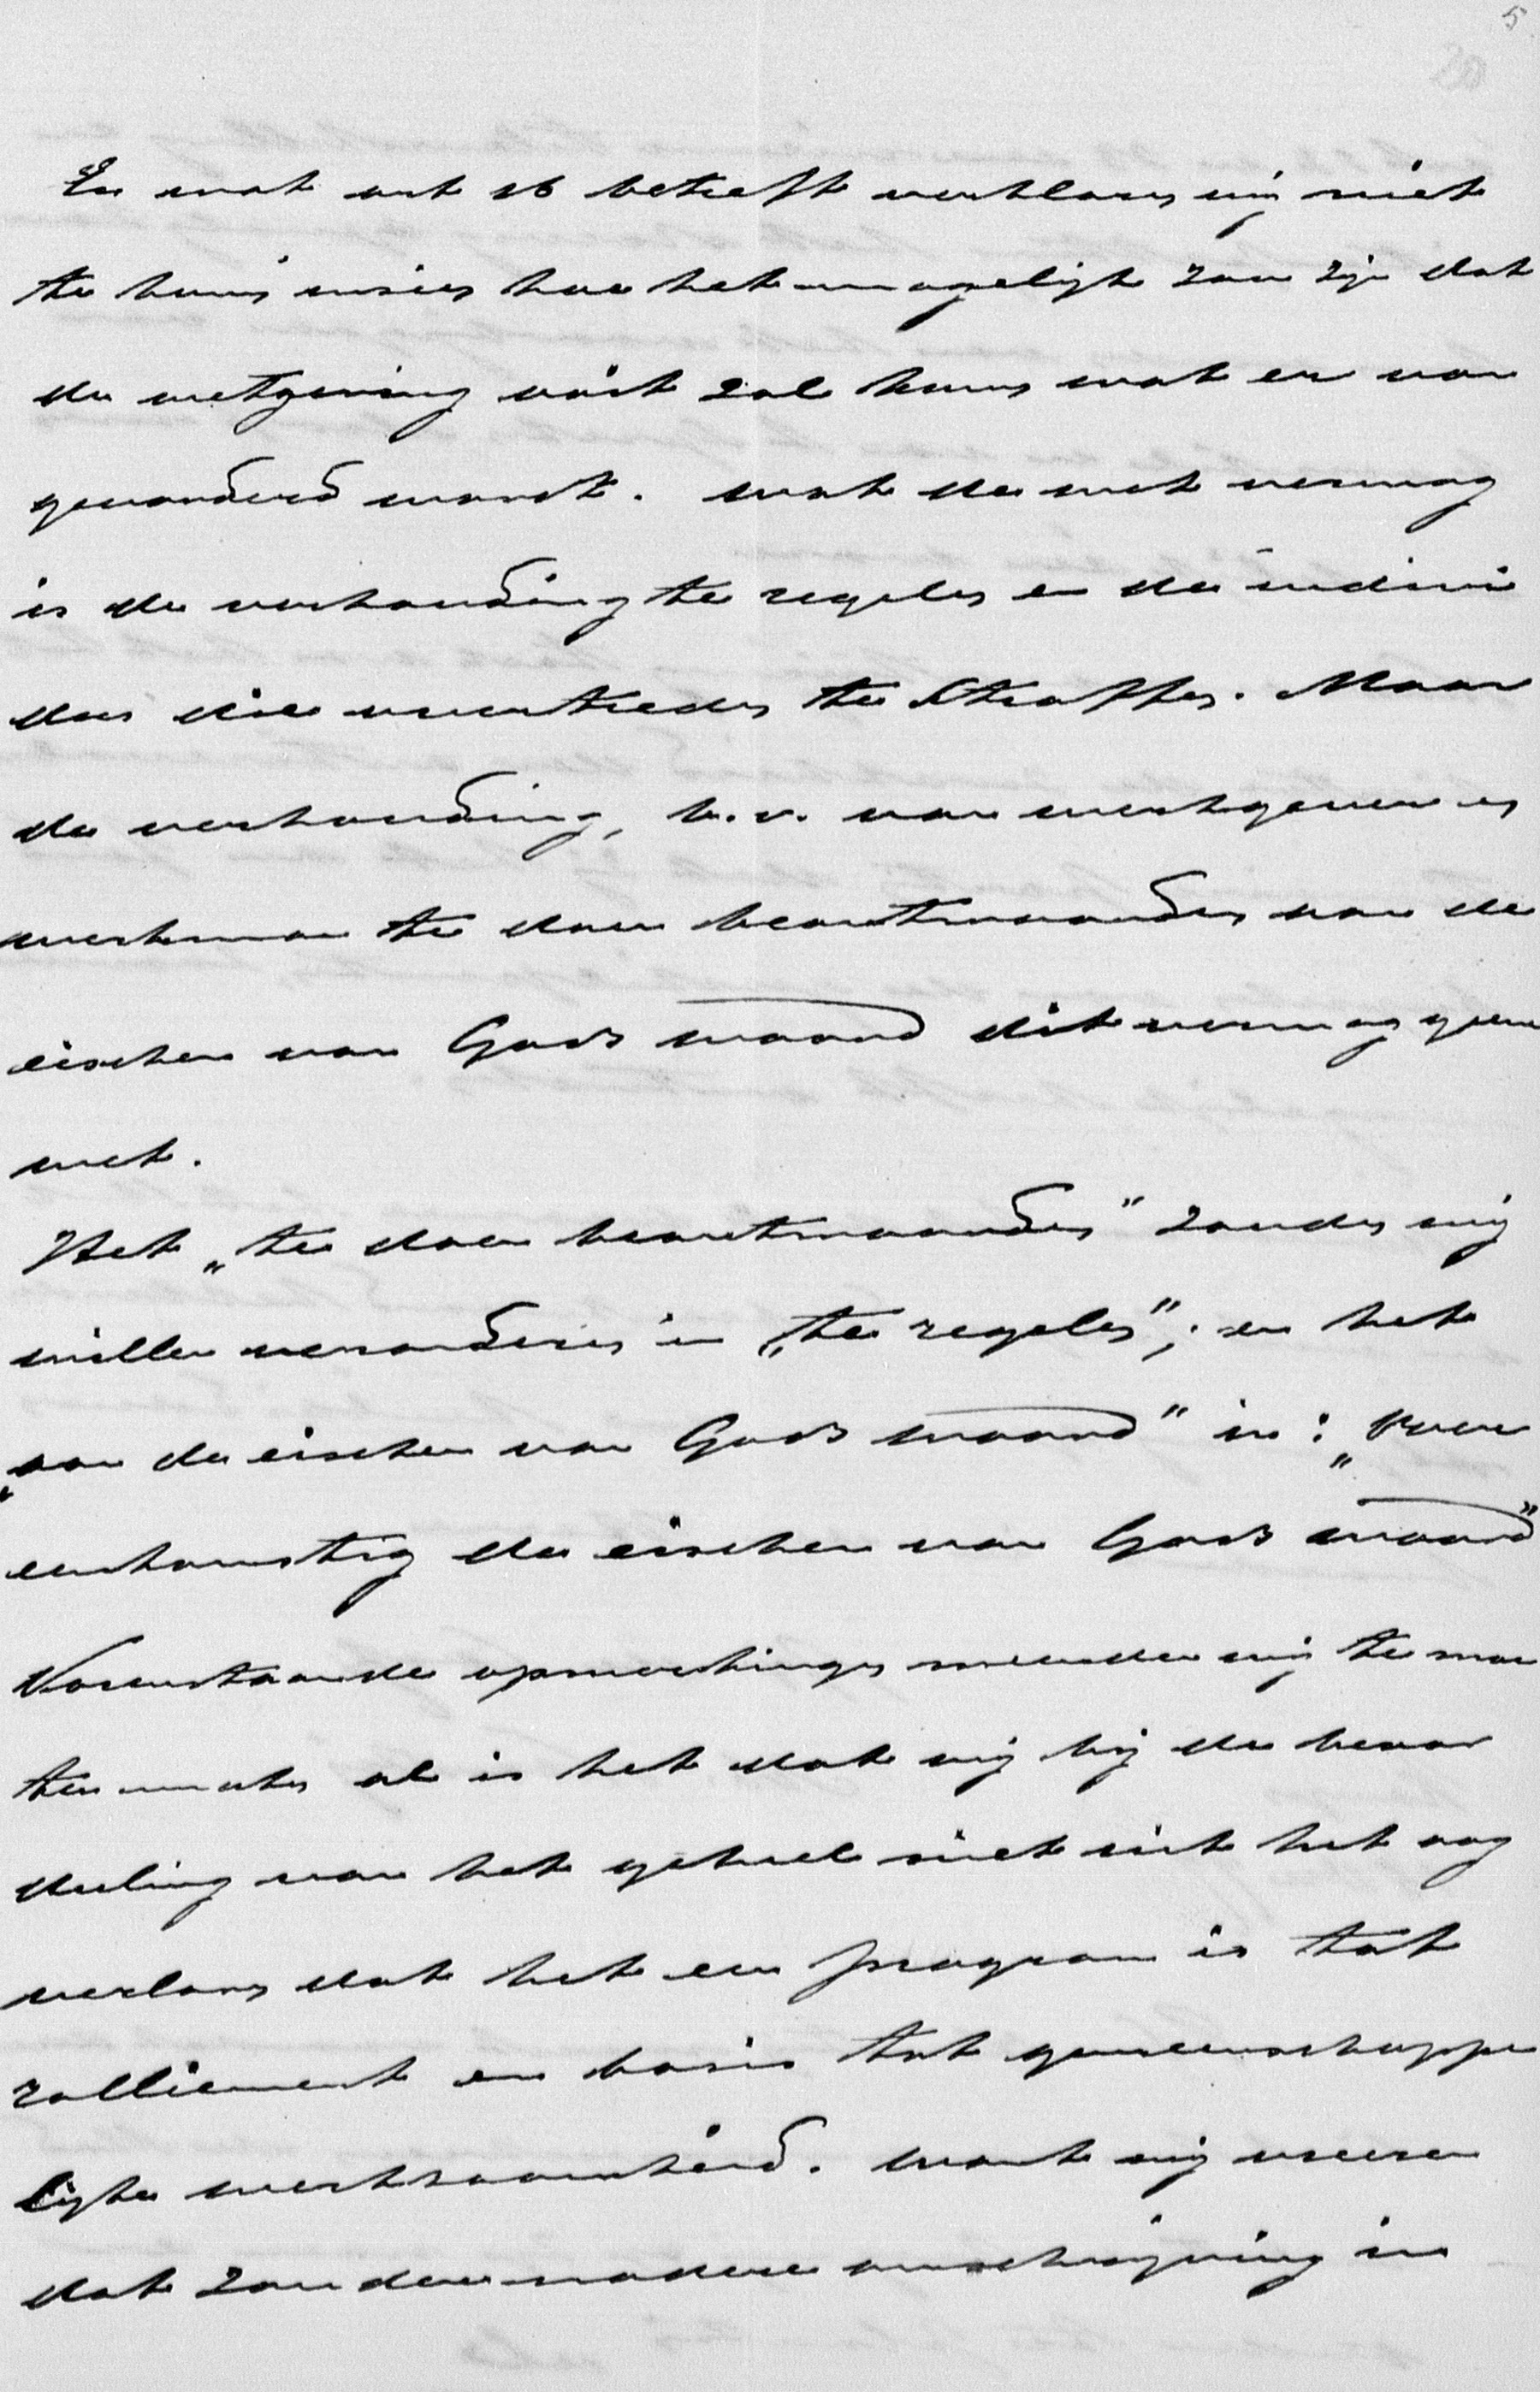 5
En wat art 16 betreft verklaren wij niet
te kunnen inzien hoe het mogelijk zou zijn dat
de wetgeving ooit zal kunnen wat er van
gevorderd wordt. Wat de wet vermag
is de verhouding te regelen en de indivi
duen die overtreden te straffen. Maar
de verhouding, b.v. van werkgever en
werkman te doen beantwoorden aan de
eischen van Gods woord dit vermag geen
wet.
Het „te doen beantwoorden" zouden wij
willen veranderen in „te regelen"; en het
„aan de eischen van Gods woord" in: „over
eenkomstig de eischen van Gods woord"
Vorenstaande opmerkingen meenden wij te moe
ten maken al is het dat wij bij de beoor
deeling van het geheel niet uit het oog
verloren dat het een program is tot
ralliement en basis tot gemeenschappe
lijke werkzaamheid. Want wij vreezen
dat zonder nadere omschrijving in